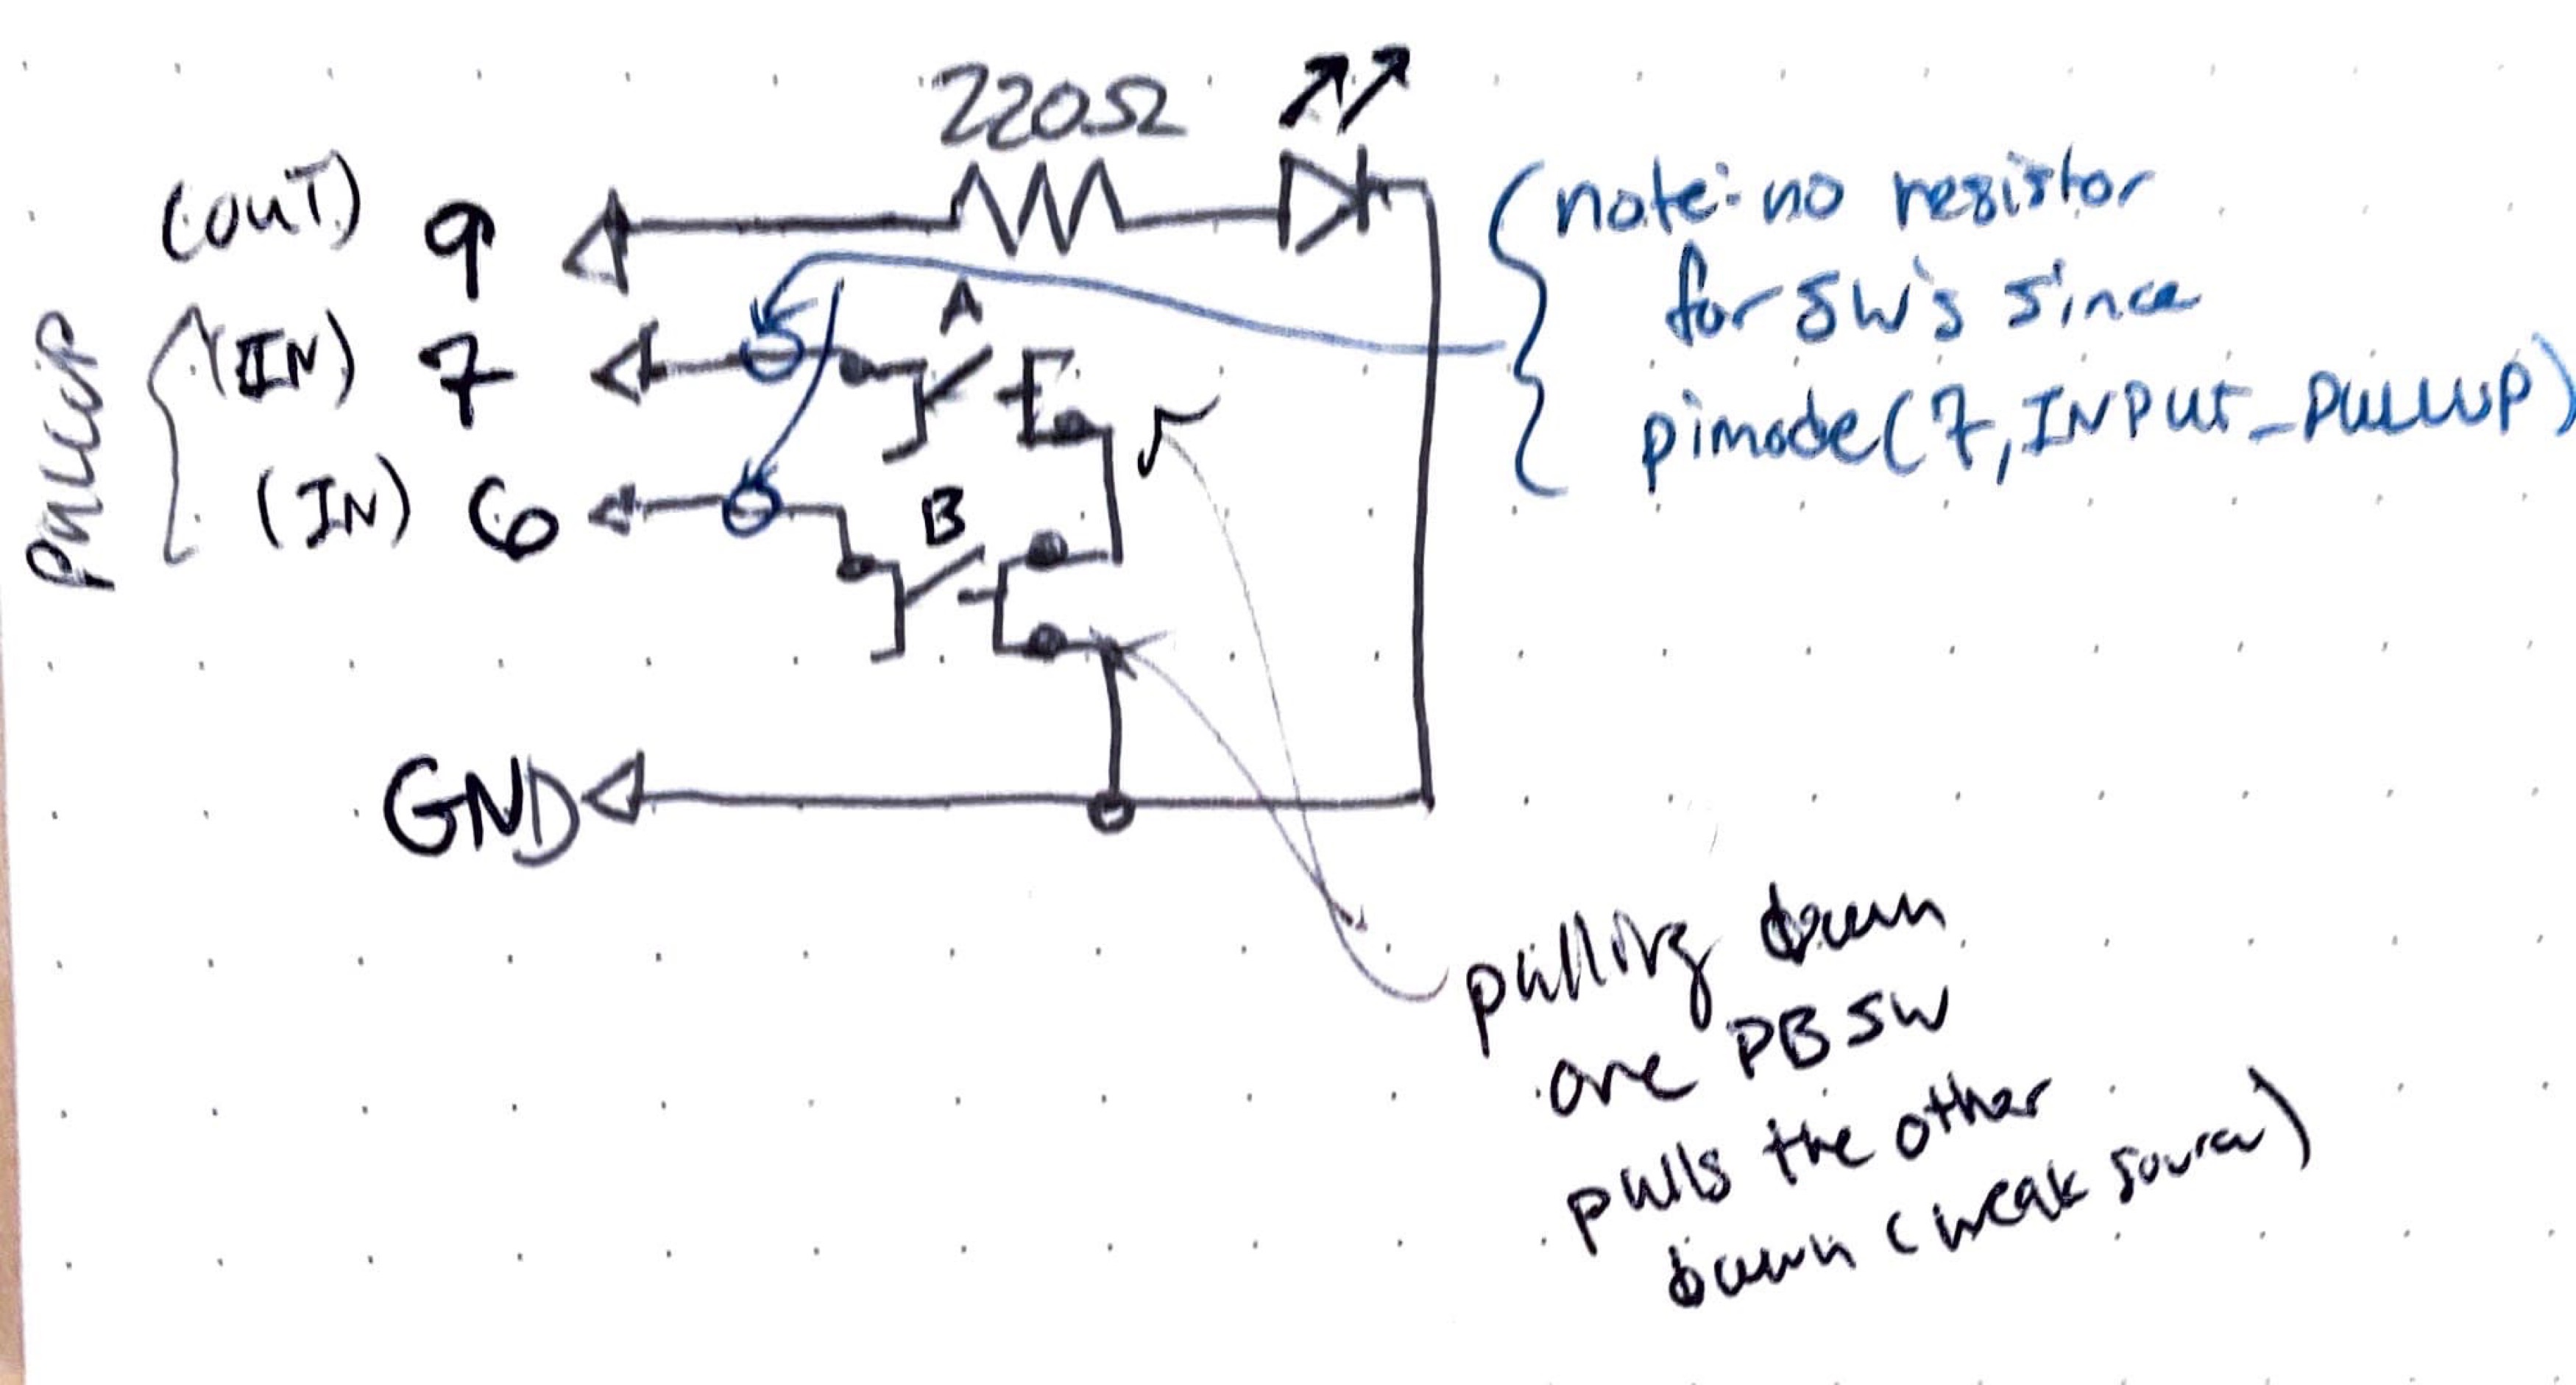 220Ω
(OUT) 9
(IN) 7
(IN) 6
PULLUP
A
B
GND
note: no resistor
for SW's since
pimode(7, INPUT_PULLUP)
pulling down
one PBSW
pulls the other
down (weak source)